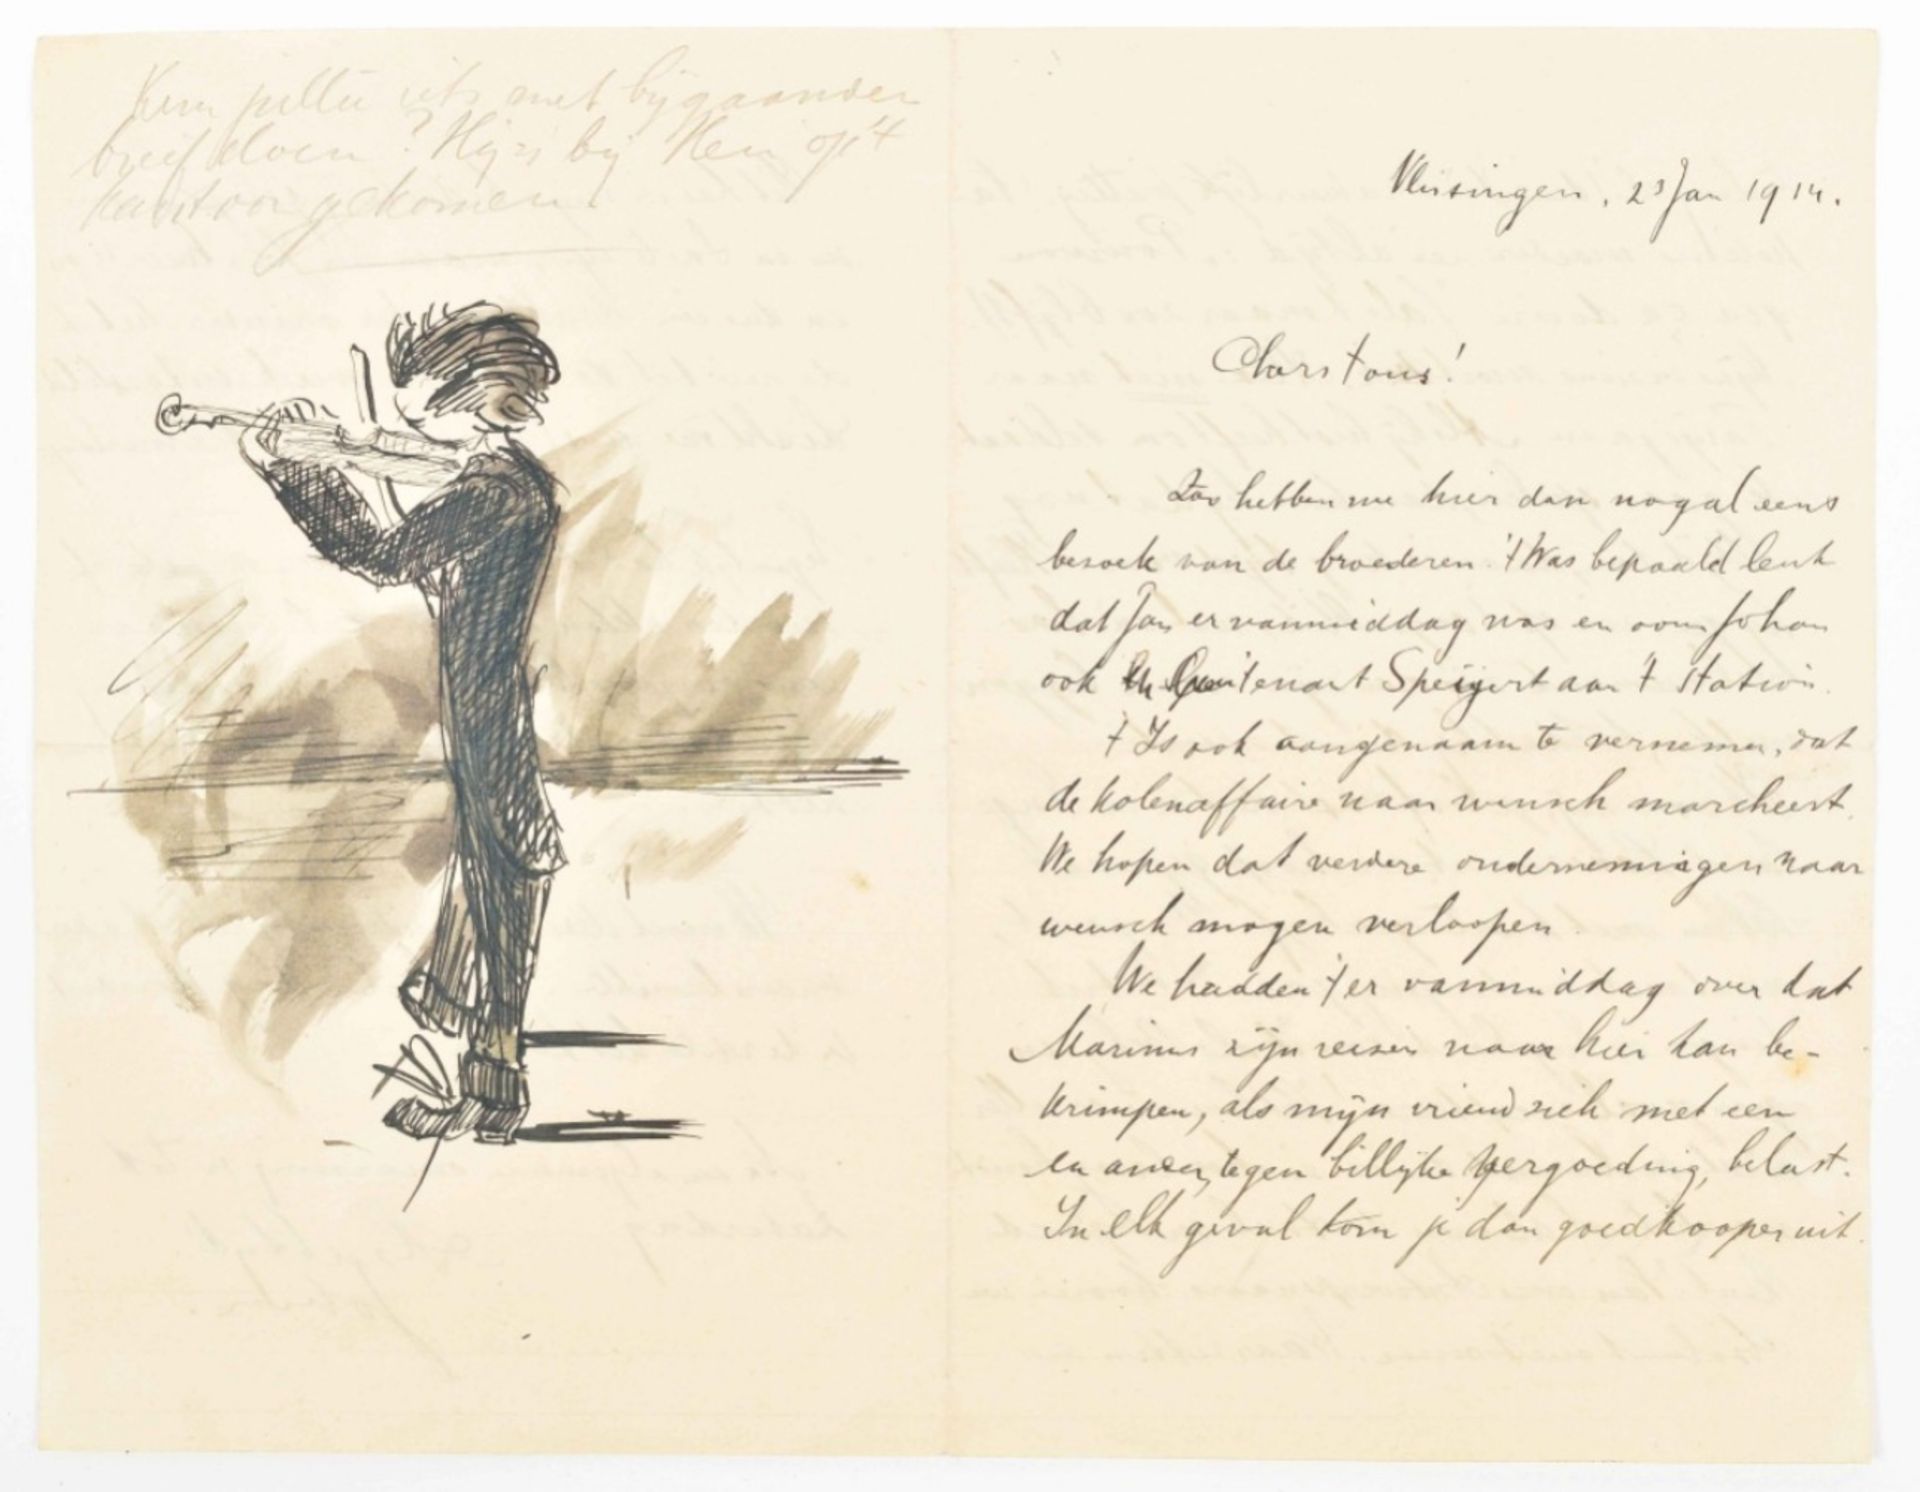 iets met bijgaanden
brief doen? Hij is bij Hem op 't
kantoor gekomen.
Vlissingen, 23 Jan 1914.
Zoo hebben we hier dan nogal eens
bezoek van de broederen. 't Was bepaald leuk
dat Jan er vanmiddag was en oom Johan
ook en Luitenant Speijert aan 't station.
't Is ook aangenaam te vernemen, dat
de kolenaffaire naar wensch marcheert.
We hopen dat verdere ondernemingen naar
wensch mogen verloopen.
We hadden 't er vanmiddag over dat
Marinus zijn reizen naar hier kan be-
krimpen, als mijn vriend zich met een
en ander, tegen billijke vergoeding, belast.
In elk geval kom je dan goedkooper uit.